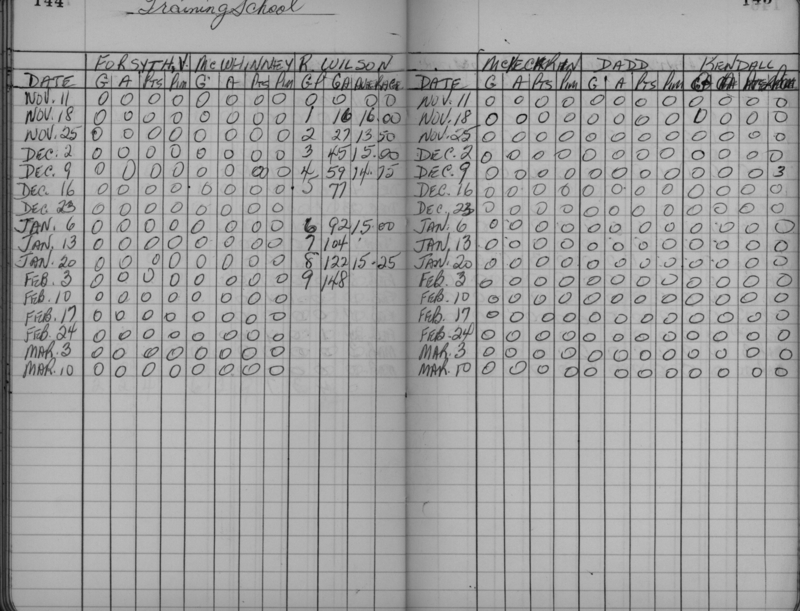 144
Training School
FORSYTH.V. McWHINNEY R. WILSON
DATE G A Pts Pim G A Pts Pim GP GA AVERAGE
NOV. 11 0 0 0 0 0 0 0 0 0 0 0 0
NOV. 18 0 0 0 0 0 0 0 0 1 16 16.00
NOV. 25 0 0 0 0 0 0 0 0 2 27 13.50
DEC. 2 0 0 0 0 0 0 0 0 3 45 15.00
DEC. 9 0 0 0 0 0 0 00 0 4 59 14.75
DEC. 16 0 0 0 0 0 0 0 0 5 77
DEC. 23 0 0 0 0 0 0 0 0
JAN. 6 0 0 0 0 0 0 0 0 6 92 15.00
JAN. 13 0 0 0 0 0 0 0 0 7 104
JAN. 20 0 0 0 0 0 0 0 0 8 122 15.25
FEB. 3 0 0 0 0 0 0 0 0 9 148
FEB. 10 0 0 0 0 0 0 0 0
FEB. 17 0 0 0 0 0 0 0 0
FEB. 24 0 0 0 0 0 0 0 0
MAR. 3 0 0 0 0 0 0 0 0
MAR. 10 0 0 0 0 0 0 0 0
DADD KENDALL
DATE G A Pts Pim G A Pts Pim
NOV. 11 0 0 0 0 0 0 0 0 0 0 0 0
NOV. 18 0 0 0 0 0 0 0 0 0 0 0
NOV. 25 0 0 0 0 0 0 0 0 0 0 0 0
DEC. 2 0 0 0 0 0 0 0 0 0 0 0 0
DEC. 9 0 0 0 0 0 0 0 0 0 0 0 3
DEC. 16 0 0 0 0 0 0 0 0 0 0 0 0
DEC. 23 0 0 0 0 0 0 0 0 0 0 0 0
JAN. 6 0 0 0 0 0 0 0 0 0 0 0 0
JAN. 13 0 0 0 0 0 0 0 0 0 0 0 0
JAN. 20 0 0 0 0 0 0 0 0 0 0 0 0
FEB. 3 0 0 0 0 0 0 0 0 0 0 0 0
FEB. 10 0 0 0 0 0 0 0 0 0 0 0 0
FEB. 17 0 0 0 0 0 0 0 0 0 0 0 0
FEB. 24 0 0 0 0 0 0 0 0 0 0 0 0
MAR. 3 0 0 0 0 0 0 0 0 0 0 0 0
MAR. 10 0 0 0 0 0 0 0 0 0 0 0 0